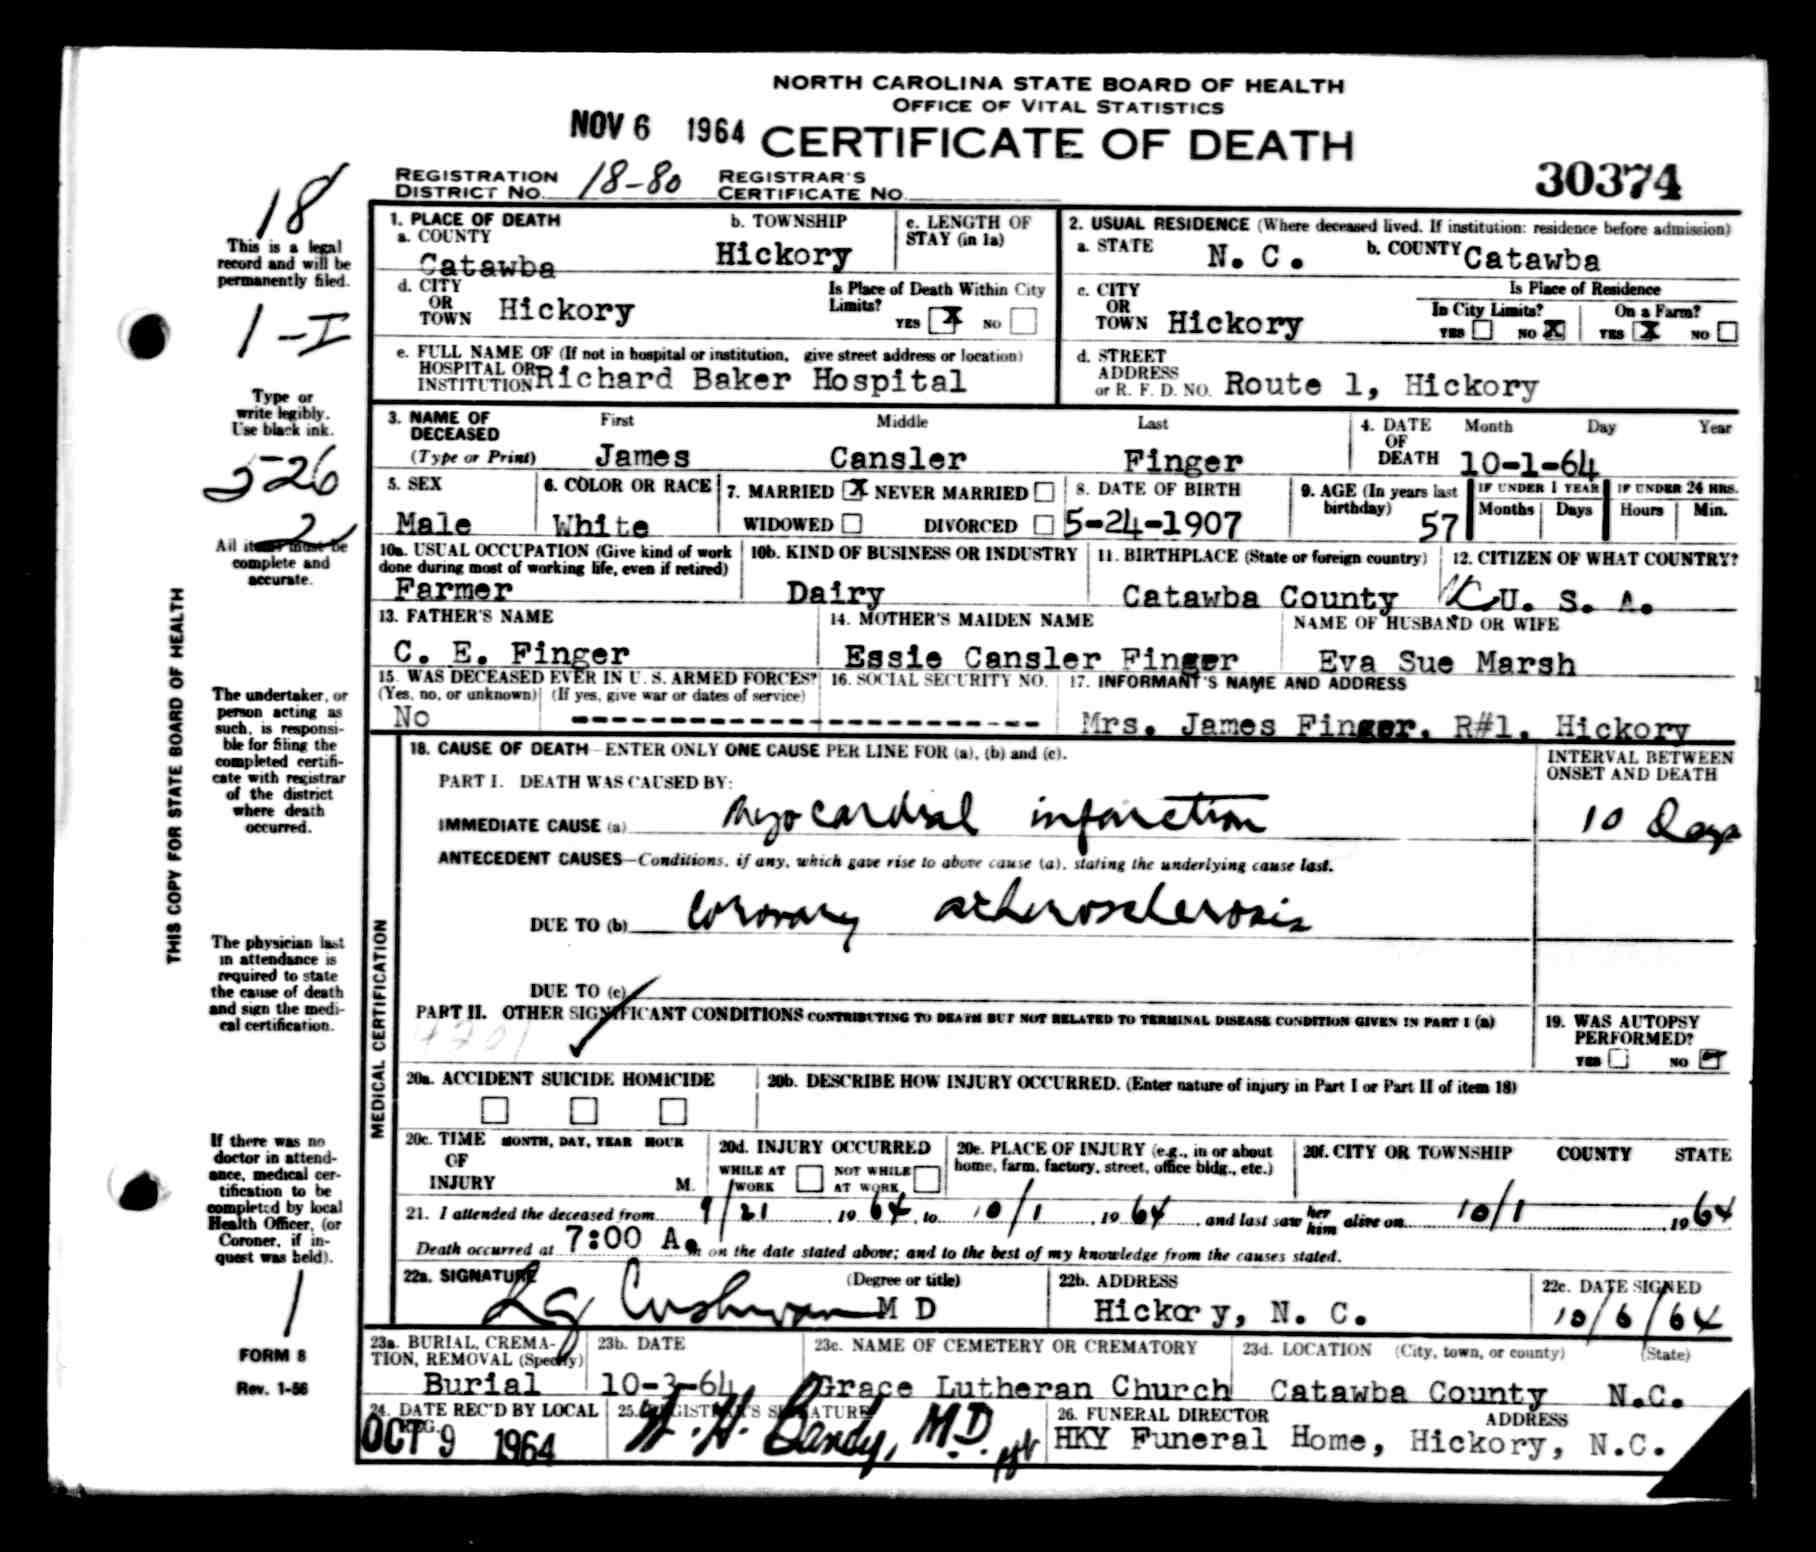 NORTH CAROLINA STATE BOARD OF HEALTH
OFFICE OF VITAL STATISTICS
NOV 6 1964 CERTIFICATE OF DEATH
REGISTRATION DISTRICT NO. 18-80 REGISTRAR'S CERTIFICATE NO.
30374
18
This is a legal
record and will be
permanently filed.
1-I
Type or
write legibly.
Use black ink.
526
2
All items must be
complete and
accurate.
THIS COPY FOR STATE BOARD OF HEALTH
The undertaker, or
person acting as
such, is responsi-
ble for filing the
completed certifi-
cate with registrar
of the district
where death
occurred.
The physician last
in attendance is
required to state
the cause of death
and sign the medi-
cal certification.
If there was no
doctor in attend-
ance, medical cer-
tification to be
completed by local
Health Officer, (or
Coroner, if in-
quest was held).
1
FORM 8
Rev. 1-56
1. PLACE OF DEATH
a. COUNTY Catawba
b. TOWNSHIP Hickory
c. LENGTH OF STAY (in 1a)
2. USUAL RESIDENCE (Where deceased lived. If institution: residence before admission)
a. STATE N. C. b. COUNTY Catawba
d. CITY OR TOWN Hickory
Is Place of Death Within City Limits? YES X NO
c. CITY OR TOWN Hickory
Is Place of Residence
In City Limits? YES NO X On a Farm? YES X NO
e. FULL NAME OF (If not in hospital or institution, give street address or location)
HOSPITAL OR INSTITUTION Richard Baker Hospital
d. STREET ADDRESS or R. F. D. NO. Route 1, Hickory
3. NAME OF DECEASED (Type or Print)
First Middle Last
James Cansler Finger
4. DATE OF DEATH Month Day Year
10-1-64
5. SEX Male
6. COLOR OR RACE White
7. MARRIED X NEVER MARRIED
WIDOWED DIVORCED
8. DATE OF BIRTH 5-24-1907
9. AGE (In years last birthday) 57
IF UNDER 1 YEAR Months Days
IF UNDER 24 HRS. Hours Min.
10a. USUAL OCCUPATION (Give kind of work done during most of working life, even if retired)
Farmer
10b. KIND OF BUSINESS OR INDUSTRY
Dairy
11. BIRTHPLACE (State or foreign country)
Catawba County
12. CITIZEN OF WHAT COUNTRY?
U. S. A.
13. FATHER'S NAME
C. E. Finger
14. MOTHER'S MAIDEN NAME
Essie Cansler Finger
NAME OF HUSBAND OR WIFE
Eva Sue Marsh
15. WAS DECEASED EVER IN U. S. ARMED FORCES?
(Yes, no, or unknown) (If yes, give war or dates of service)
No
16. SOCIAL SECURITY NO.
17. INFORMANT'S NAME AND ADDRESS
Mrs. James Finger, R#1, Hickory
MEDICAL CERTIFICATION
18. CAUSE OF DEATH—ENTER ONLY ONE CAUSE PER LINE FOR (a), (b) and (c).
INTERVAL BETWEEN ONSET AND DEATH
PART I. DEATH WAS CAUSED BY:
IMMEDIATE CAUSE (a) Myocardial infarction 10 Days
ANTECEDENT CAUSES—Conditions, if any, which gave rise to above cause (a), stating the underlying cause last.
DUE TO (b) Coronary atherosclerosis
DUE TO (c)
PART II. OTHER SIGNIFICANT CONDITIONS CONTRIBUTING TO DEATH BUT NOT RELATED TO TERMINAL DISEASE CONDITION GIVEN IN PART I (a)
4201
19. WAS AUTOPSY PERFORMED?
YES NO
20a. ACCIDENT SUICIDE HOMICIDE
20b. DESCRIBE HOW INJURY OCCURRED. (Enter nature of injury in Part I or Part II of item 18)
20c. TIME OF INJURY MONTH, DAY, YEAR HOUR M.
20d. INJURY OCCURRED
WHILE AT WORK NOT WHILE AT WORK
20e. PLACE OF INJURY (e.g., in or about home, farm, factory, street, office bldg., etc.)
20f. CITY OR TOWNSHIP COUNTY STATE
21. I attended the deceased from 9/21, 1964, to 10/1, 1964, and last saw her him alive on 10/1 1964
Death occurred at 7:00 A. m on the date stated above; and to the best of my knowledge from the causes stated.
22a. SIGNATURE (Degree or title)
Cushman M D
22b. ADDRESS
Hickory, N. C.
22c. DATE SIGNED
10/6/64
23a. BURIAL, CREMATION, REMOVAL (Specify)
Burial
23b. DATE
10-3-64
23c. NAME OF CEMETERY OR CREMATORY
Grace Lutheran Church
23d. LOCATION (City, town, or county) (State)
Catawba County N.C.
24. DATE REC'D BY LOCAL REG.
OCT 9 1964
25. REGISTRAR'S SIGNATURE
W. H. Bandy, M.D.
26. FUNERAL DIRECTOR ADDRESS
HKY Funeral Home, Hickory, N.C.